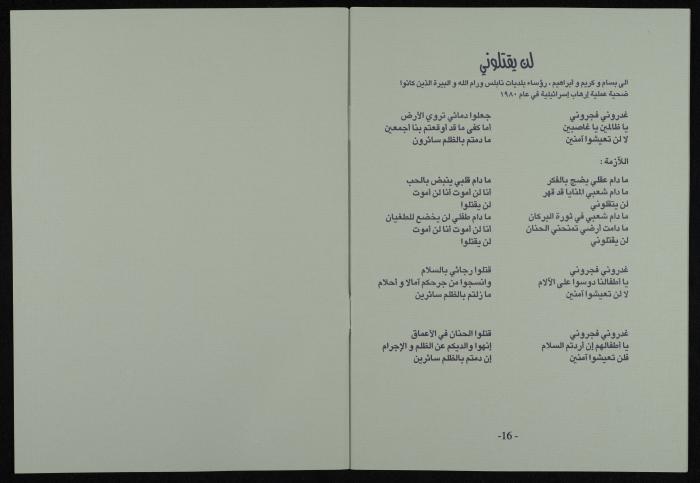 لن يقتلوني
الى بسام و كريم و ابراهيم ، رؤساء بلديات نابلس ورام الله و البيرة الذين كانوا
ضحية عملية إرهاب إسرائيلية في عام ١٩٨٠
غدروني فجروني جعلوا دمائي تروي الأرض
يا ظالمين يا غاصبين أما كفى ما قد أوقعتم بنا أجمعين
لا لن تعيشوا آمنين ما دمتم بالظلم سائرون
اللآزمة :
ما دام عقلي يضج بالفكر ما دام قلبي ينبض بالحب
ما دام شعبي المنايا قد قهر أنا لن أموت أنا لن أموت
لن يتقلوني لن يقتلوا
ما دام شعبي في ثورة البركان ما دام طفلي لن يخضع للطغيان
ما دامت أرضي تمنحني الحنان أنا لن أموت أنا لن أموت
لن يقتلوني لن يقتلوا
غدروني فجروني قتلوا رجائي بالسلام
يا أطفالنا دوسوا على الآلام وانسجوا من جرحكم آمالا و أحلام
لا لن تعيشوا آمنين ما زلتم بالظلم سائرين
غدروني فجروني قتلوا الحنان في الأعماق
يا أطفالهم إن أردتم السلام إنهوا والديكم عن الظلم و الإجرام
فلن تعيشوا آمنين إن دمتم بالظلم سائرين
-16-